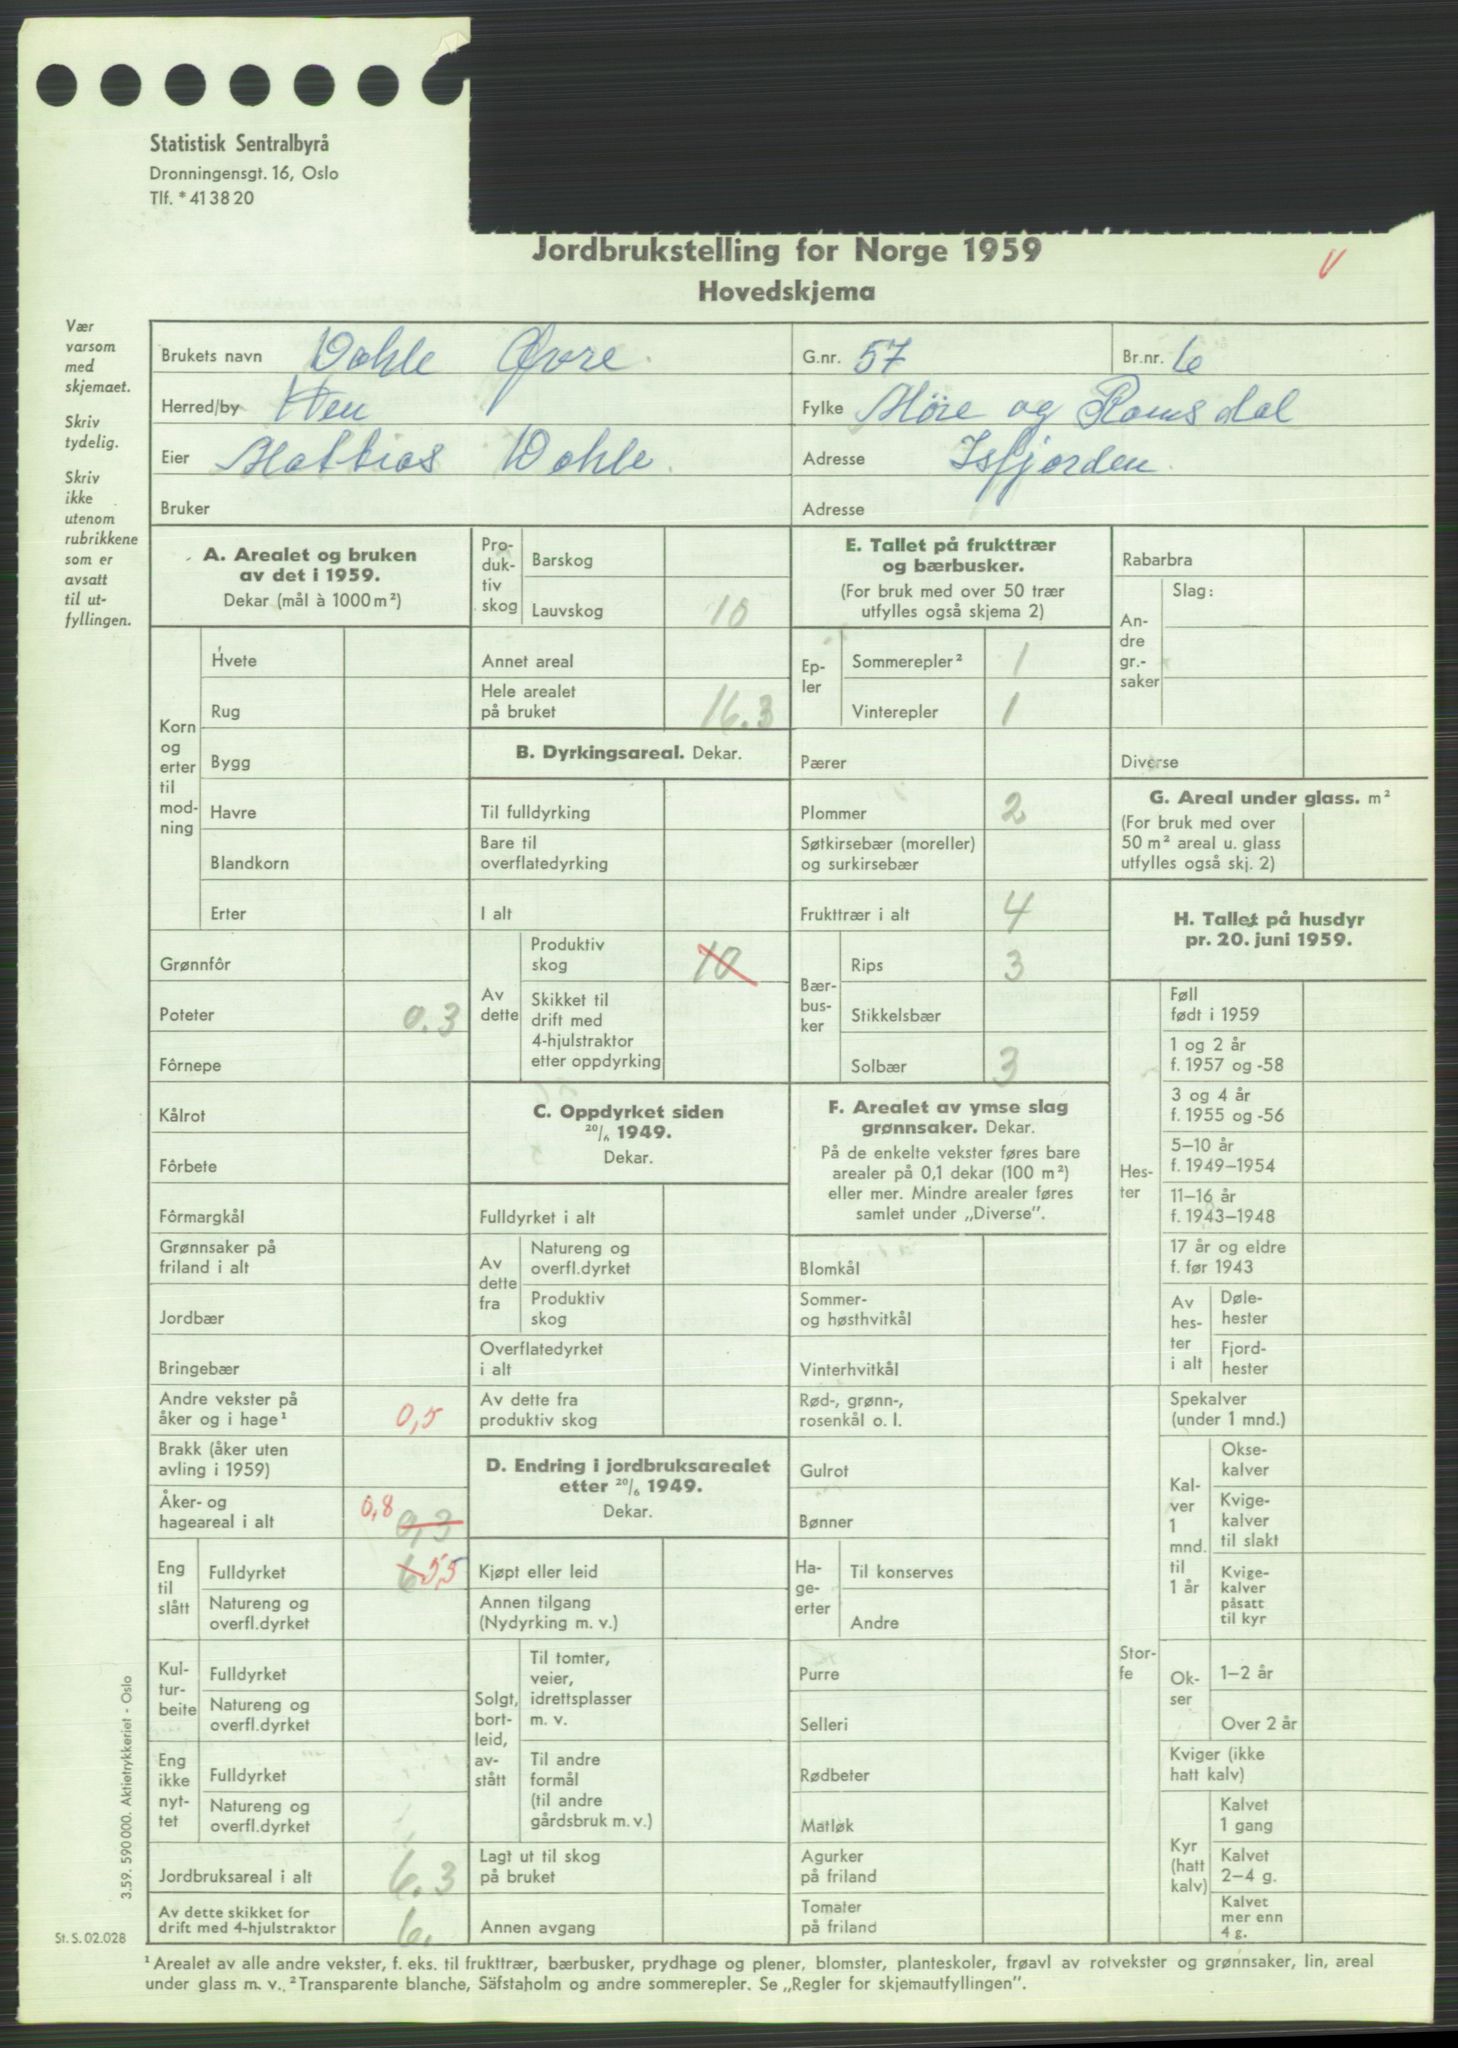 Statistisk Sentralbyrå
Dronningensgt. 16, Oslo
Tlf. * 41 38 20
Jordbrukstelling for Norge 1959
Hovedskjema
V
Vær
varsom
med
skjemaet.
Skriv
tydelig.
Skriv
ikke
utenom
rubrikkene
som er
avsatt
til ut-
fyllingen.
Brukets navn Dahle Øvre. G.nr. 57 Br.nr. 6
Herred/by Hen Fylke Møre og Romsdal
Eier Mattias Dahle. Adresse Isfjorden.
Bruker Adresse
A. Arealet og bruken
av det i 1959.
Dekar (mål à 1000 m²)
Korn
og
erter
til
mod-
ning
Hvete
Rug
Bygg
Havre
Blandkorn
Erter
Grønnfôr
Poteter 0.3
Fôrnepe
Kålrot
Fôrbete
Fôrmargkål
Grønnsaker på
friland i alt
Jordbær
Bringebær
Andre vekster på
åker og i hage¹ 0,5
Brakk (åker uten
avling i 1959)
Åker- og
hageareal i alt 0,8 0,3
Eng
til
slått
Fulldyrket 6 5,5
Natureng og
overfl.dyrket
Kul-
tur-
beite
Fulldyrket
Natureng og
overfl.dyrket
Eng
ikke
nyt-
tet
Fulldyrket
Natureng og
overfl.dyrket
Jordbruksareal i alt 6.3
Av dette skikket for
drift med 4-hjulstraktor 6.
Pro-
duk-
tiv
skog
Barskog
Lauvskog 10
Annet areal
Hele arealet
på bruket 16.3
B. Dyrkingsareal. Dekar.
Til fulldyrking
Bare til
overflatedyrking
I alt
Av
dette
Produktiv
skog 10
Skikket til
drift med
4-hjulstraktor
etter oppdyrking
C. Oppdyrket siden
20/6 1949.
Dekar.
Fulldyrket i alt
Av
dette
fra
Natureng og
overfl.dyrket
Produktiv
skog
Overflatedyrket
i alt
Av dette fra
produktiv skog
D. Endring i jordbruksarealet
etter 20/6 1949.
Dekar.
Kjøpt eller leid
Annen tilgang
(Nydyrking m. v.)
Solgt,
bort-
leid,
av-
stått
Til tomter,
veier,
idrettsplasser
m. v.
Til andre
formål
(til andre
gårdsbruk m. v.)
Lagt ut til skog
på bruket
Annen avgang
E. Tallet på frukttrær
og bærbusker.
(For bruk med over 50 trær
utfylles også skjema 2)
Ep-
ler
Sommerepler² 1
Vinterepler 1
Pærer
Plommer 2
Søtkirsebær (moreller)
og surkirsebær
Frukttrær i alt 4
Bær-
bus-
ker
Rips 3
Stikkelsbær
Solbær 3
F. Arealet av ymse slag
grønnsaker. Dekar.
På de enkelte vekster føres bare
arealer på 0,1 dekar (100 m²)
eller mer. Mindre arealer føres
samlet under „Diverse”.
Blomkål
Sommer-
og høsthvitkål
Vinterhvitkål
Rød-, grønn-,
rosenkål o. l.
Gulrot
Bønner
Ha-
ge-
erter
Til konserves
Andre
Purre
Selleri
Rødbeter
Matløk
Agurker
på friland
Tomater
på friland
Rabarbra
An-
dre
gr.-
saker
Slag:
Diverse
G. Areal under glass. m²
(For bruk med over
50 m² areal u. glass
utfylles også skj. 2)
H. Tallet på husdyr
pr. 20. juni 1959.
Hes-
ter
Føll
født i 1959
1 og 2 år
f. 1957 og -58
3 og 4 år
f. 1955 og -56
5–10 år
f. 1949–1954
11–16 år
f. 1943–1948
17 år og eldre
f. før 1943
Av
hes-
ter
i alt
Døle-
hester
Fjord-
hester
Stor-
fe
Spekalver
(under 1 mnd.)
Kal-
ver
1
mnd.
til
1 år
Okse-
kalver
Kvige-
kalver
til slakt
Kvige-
kalver
påsatt
til kyr
Ok-
ser
1–2 år
Over 2 år
Kviger (ikke
hatt kalv)
Kyr
(hatt
kalv)
Kalvet
1 gang
Kalvet
2–4 g.
Kalvet
mer enn
4 g.
3.59. 590 000. Aktietrykkeriet - Oslo
St. S. 02.028
¹ Arealet av alle andre vekster, f. eks. til frukttrær, bærbusker, prydhage og plener, blomster, planteskoler, frøavl av rotvekster og grønnsaker, lin, areal
under glass m. v. ² Transparente blanche, Säfstaholm og andre sommerepler. Se „Regler for skjemautfyllingen”.